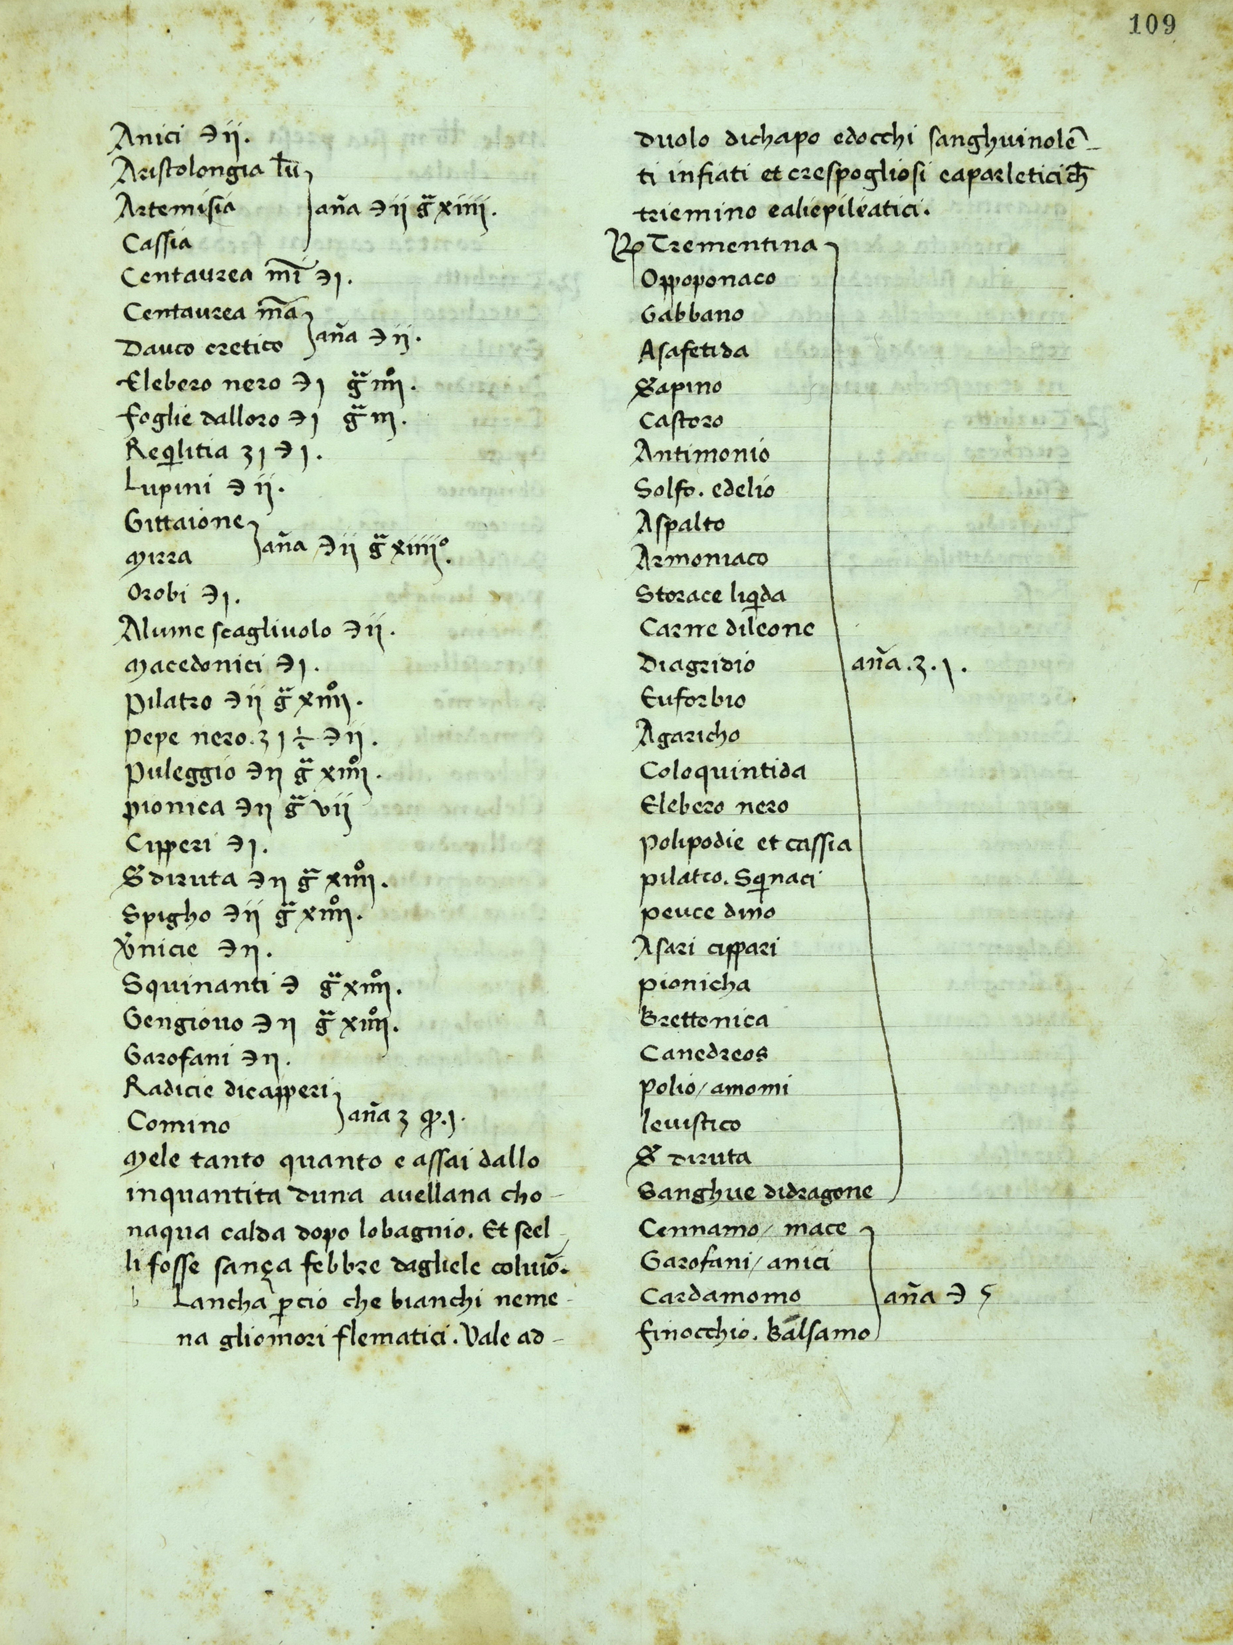 109
Anici ℈ ij.
Aristolongia lū
Artemisia } ana ℈ ij gᵃ xiiij.
Cassia
Centaurea mī ℈ j.
Centaurea mā
Dauco cretico } ana ℈ ij.
Elebero nero ℈ j gᵃ iiijº.
foglie dalloro ℈ j gᵃ iij.
Reqilitia ʒ j ℈ j.
Lupini ℈ ij.
Gittaione
Mirra } ana ℈ ij gᵃ xiiijº.
Orobi ℈ j.
Alume scagliuolo ℈ ij.
Macedonici ℈ j.
Pilatro ℈ ij gᵃ xiiijº.
Pepe nero. ʒ j ÷ ℈ ij.
Puleggio ℈ ij gᵃ xiiijº.
pionica ℈ ij gᵃ vij
Cipperi ℈ j.
S diruta ℈ ij gᵃ xiiijº.
Spigho ℈ ij gᵃ xiiijº.
nicie ℈ ij.
Squinanti ℈ gᵃ xiiijº.
Gengiouo ℈ ij gᵃ xiiijº.
Garofani ℈ ij.
Radicie dicapperi
Comino } ana ʒ . j.
Mele tanto quanto e assai dallo
inquantita duna auellana cho-
naqua calda dopo lobagnio. Et seel
li fosse sança febbre dagliele coluiō.
Lancha ꝑcio che bianchi neme-
na gliomori flematici. Vale ad-
duolo dichapo edocchi sanghuinolē-
ti infiati et crespogliosi eaparleticich̄
triemino ealiepileatici.
℞ Trementina
Oppoponaco
Gabbano
Asafetida
Sapino
Castoro
Antimonio
Solfo. edelio
Aspalto
Armoniaco
Storace liqida
Carne dileone
Diagridio } ana. ʒ. j.
Euforbio
Agaricho
Coloquintida
Elebero nero
Polipodie et cassia
pilatro. Sqinaci
peuce dino
Asari cippari
pionicha
Brettonica
Canedreos
Polio/amomi
leuistico
S diruta
Sanghue didragone
Cennamo/ mace
Garofani/ anici
Cardamomo } ana ℈ 5
finocchio. Balsamo